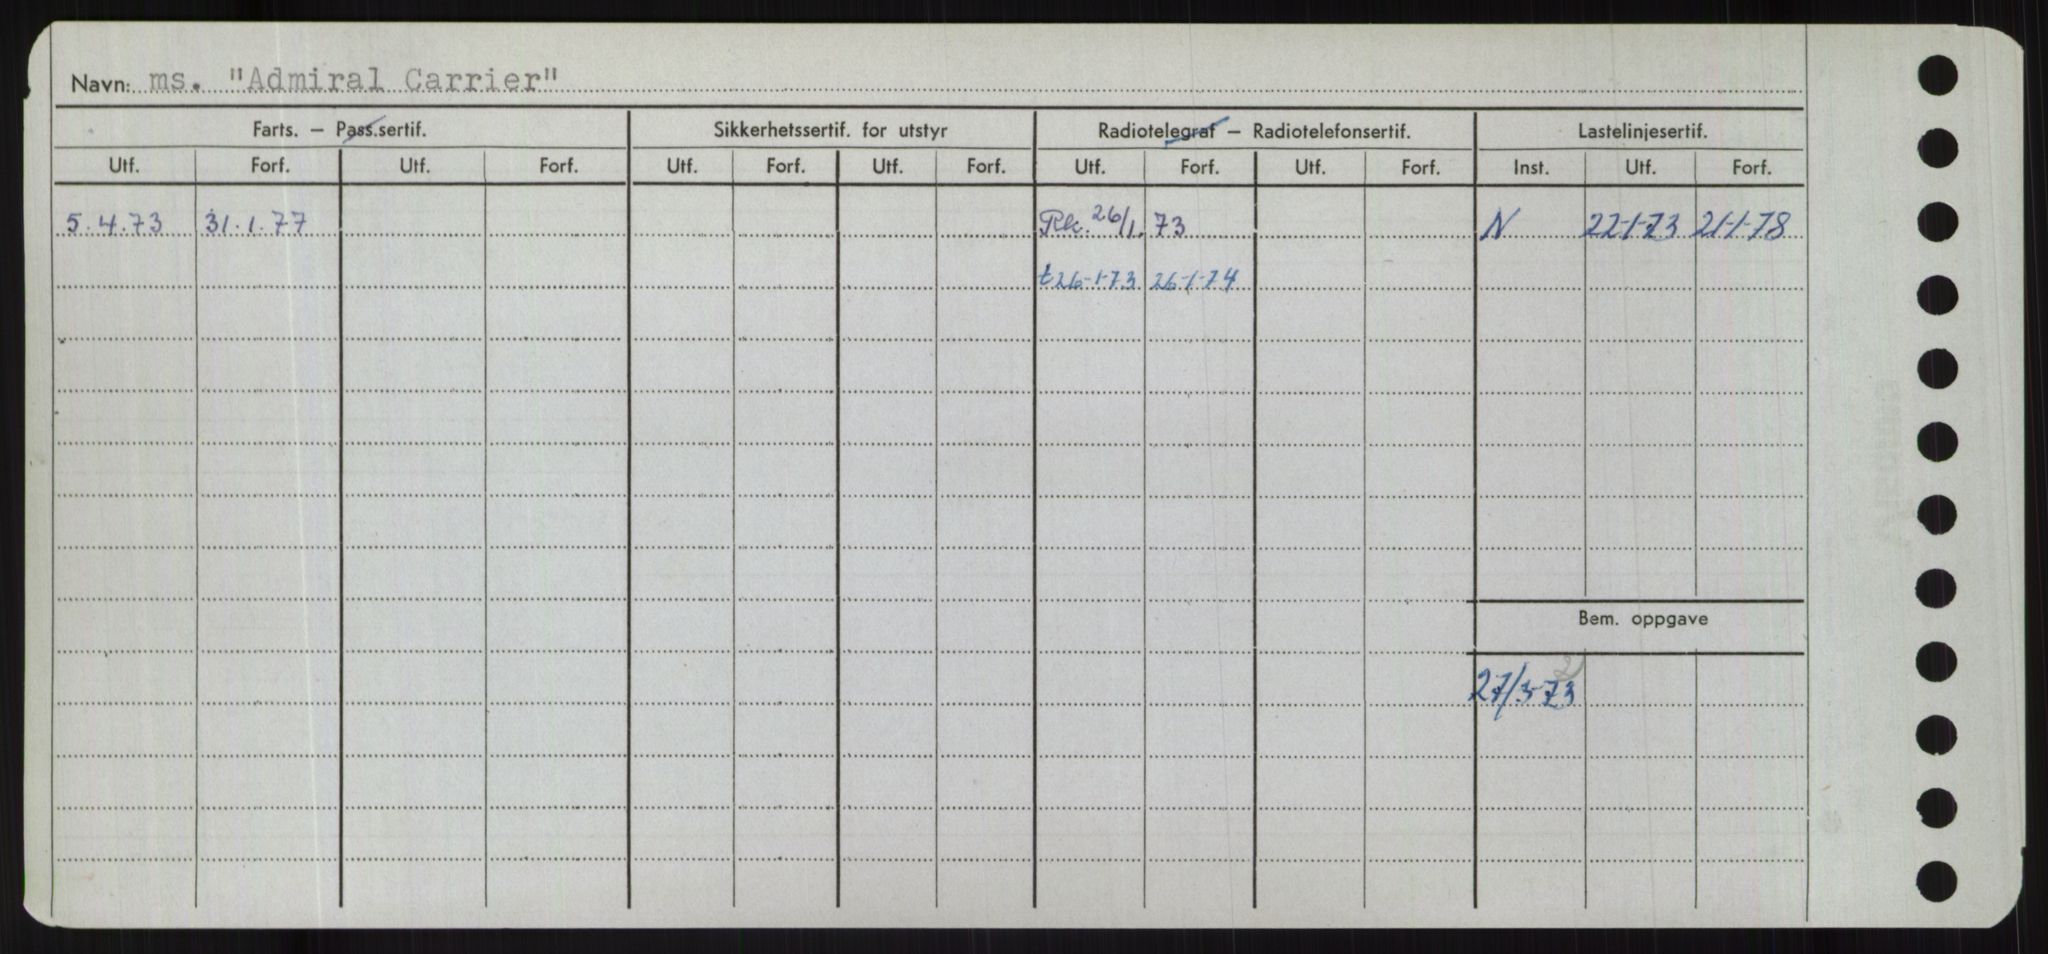 Navn: ms. "Admiral Carrier"
Farts. — Pass.sertif. Sikkerhetssertif. for utstyr Radiotelegraf — Radiotelefonsertif. Lastelinjesertif.
Utf. Forf. Utf. Forf. Utf. Forf. Utf. Forf. Utf. Forf. Utf. Forf. Inst. Utf. Forf.
5.4.73 31.1.77 Rk. 26/1. 73 N 22-1-73 21-1-78
t 26-1-73 26-1-74
Bem. oppgave
27/3-73